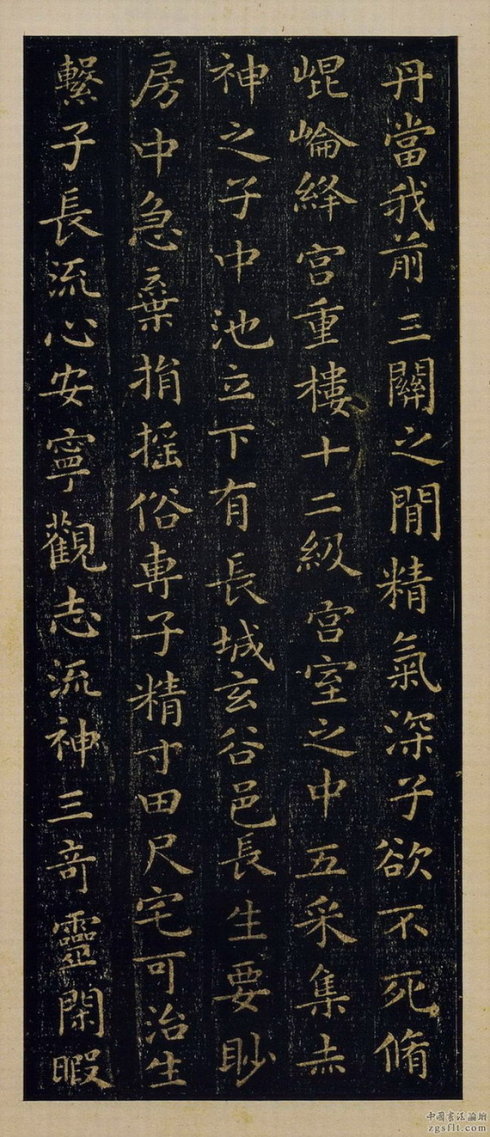 丹當我前三關之間精氣深子欲不死脩
崐崘絳宮重樓十二級宮室之中五采集赤
神之子中池立下有長城玄谷邑長生要眇
房中急棄捐搖俗專子精寸田尺宅可治生
繫子長流心安寧觀志流神三奇靈閑暇
中國書法論壇
zgsflt.com